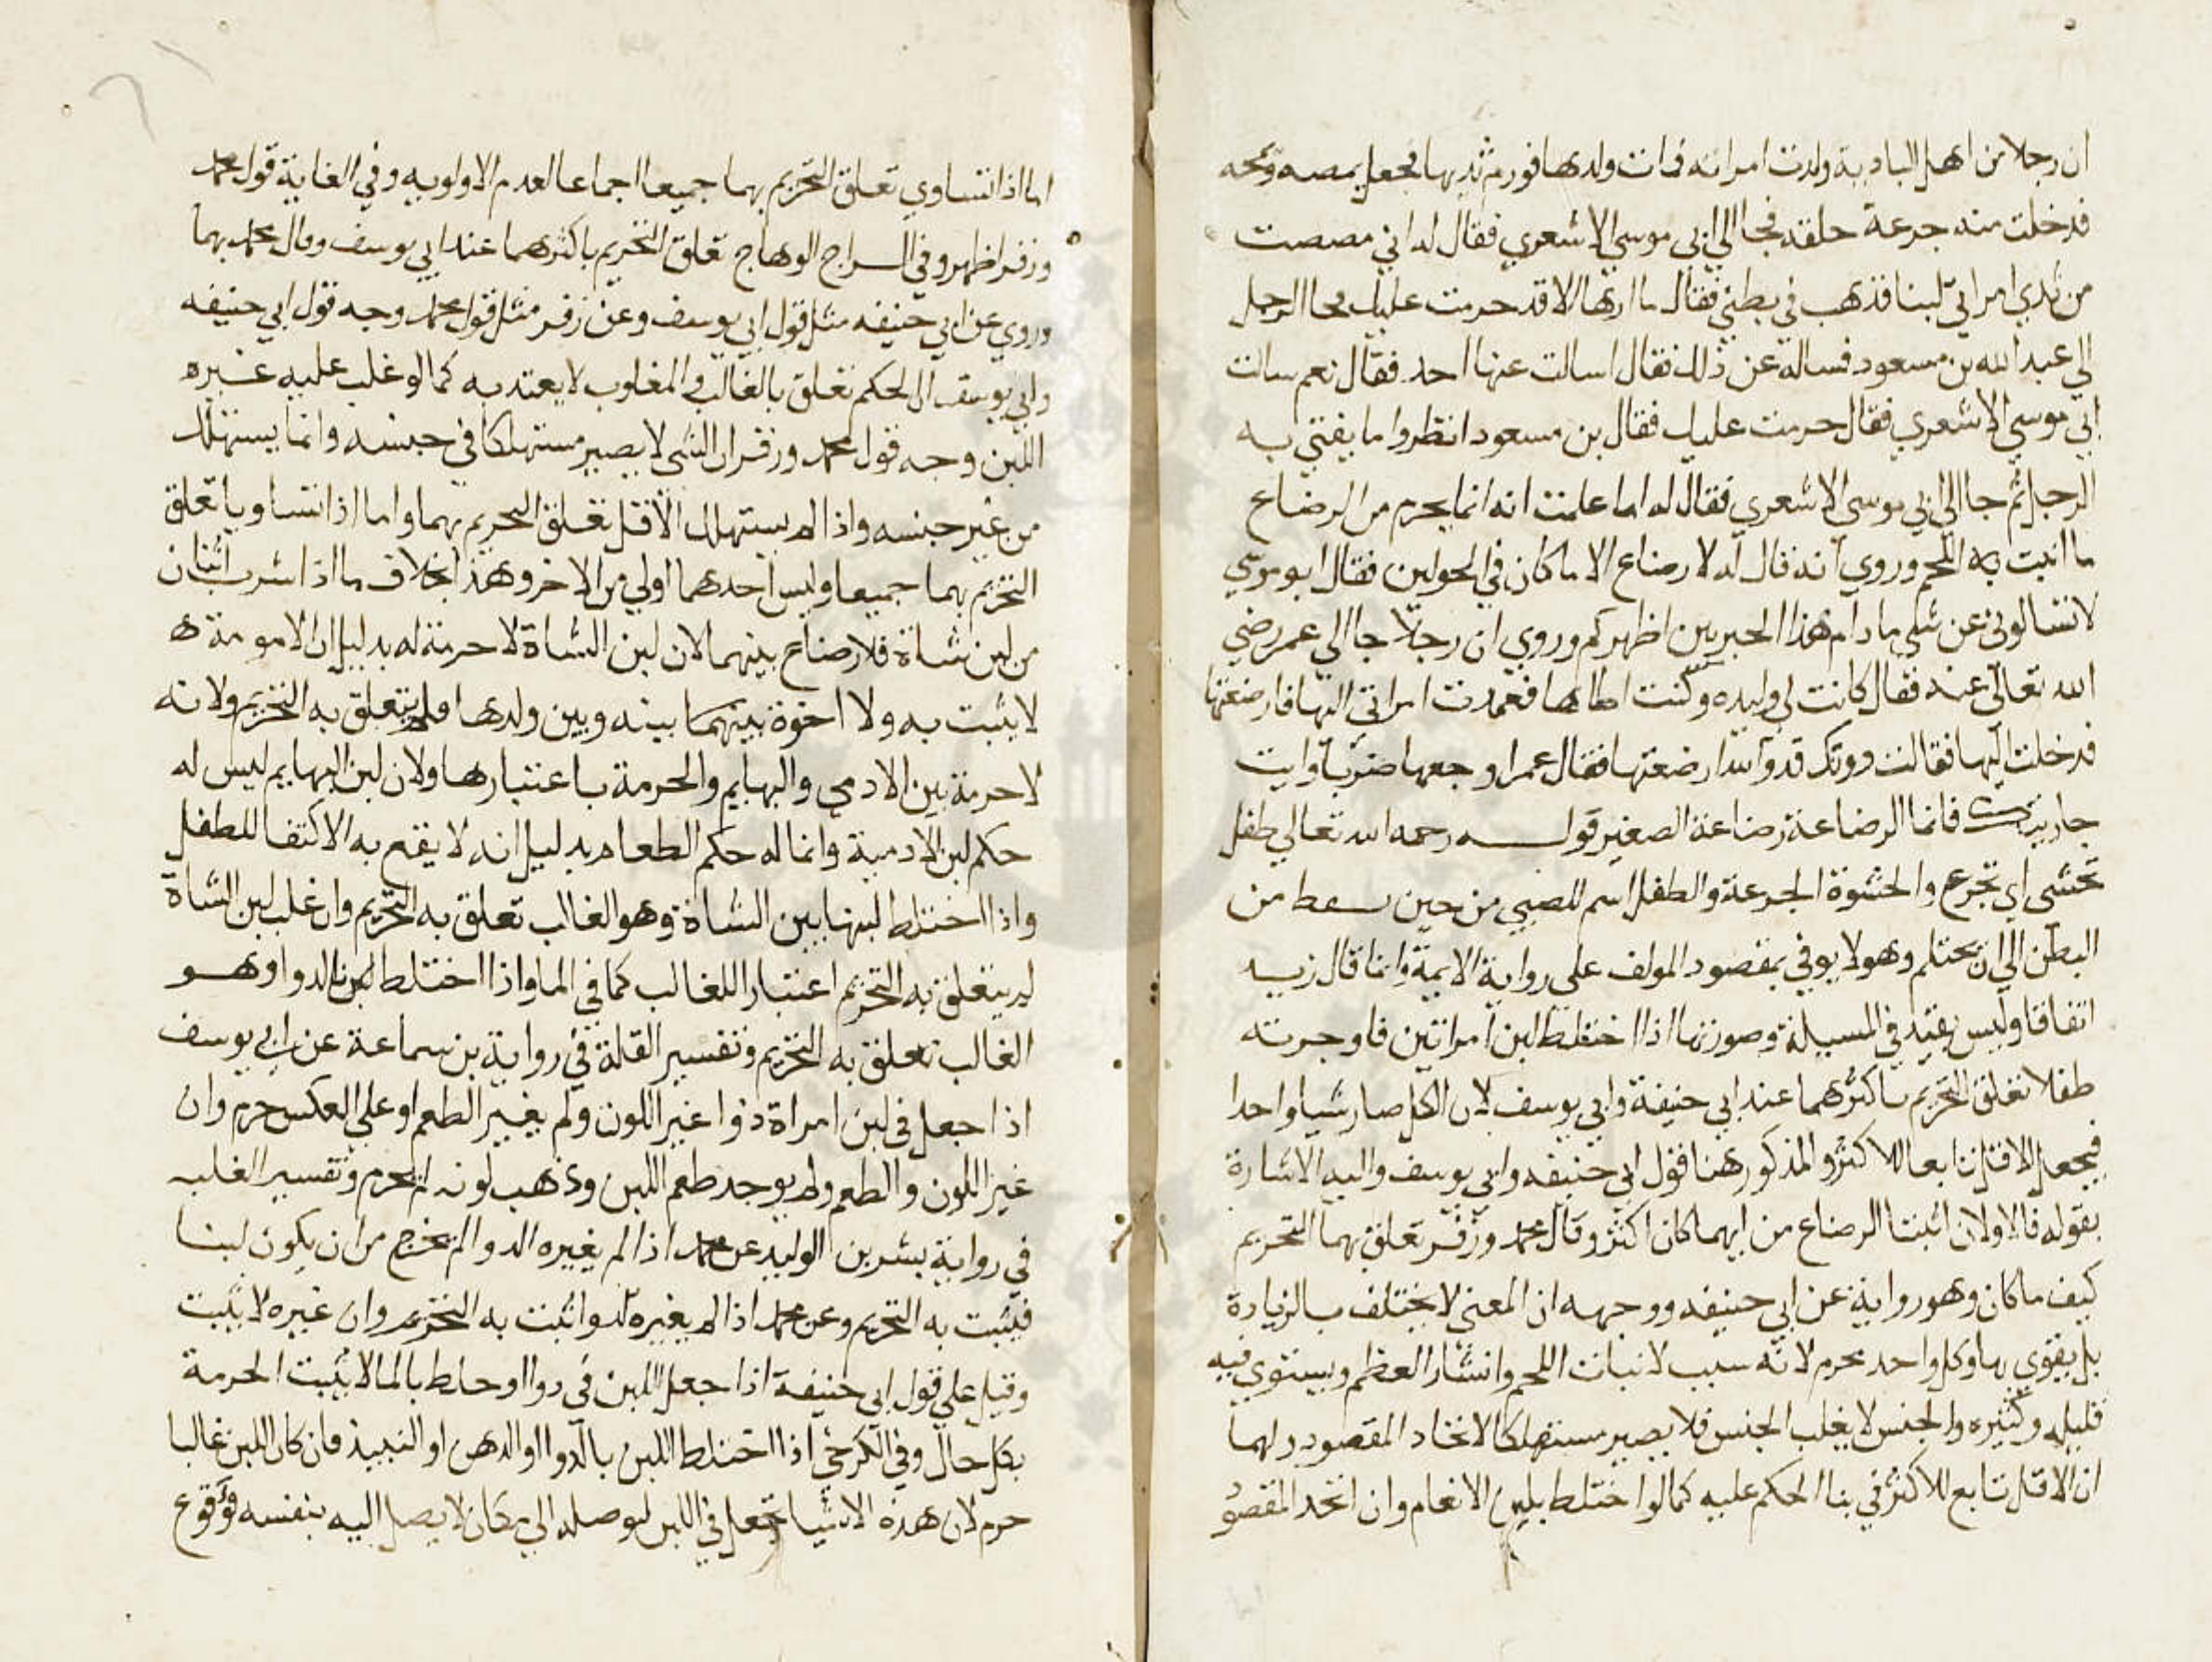 ان رجلا من اهل البادية ولدت امراته فمات ولدها فورم ثديها فجعل يمصه ويمجه
فدخلت منه جرعة حلقه فجا الي ابي موسي الاشعري فقال له اني مصصت
من ثدي امراتي لبنا فذهب في بطني فقال ما اراها الا قد حرمت عليك فجا الرجل
الي عبد الله بن مسعود فساله عن ذلك فقال اسالت عنها احد فقال نعم سالت
ابي موسي الاشعري فقال حرمت عليك فقال بن مسعود انظروا ما يفتي به
الرجل ثم جا الي ابي موسي الاشعري فقال له اما علمت انه انما يحرم من الرضاع
ما انبت به اللحم وروي انه قال له لا رضاع الا ما كان في الحولين فقال ابو موسي
لا تسالوني عن شي ما دام هذا الحبر بين اظهركم وروي ان رجلا جا الي عمر رضي
الله تعالي عنه فقال كانت لي وليده وكنت اطاها فعمدت امراتي اليها فارضعتها
فدخلت اليها فقالت دونك قد والله ارضعتها فقال عمر اوجعها ضربا وايت
جاريتك فانما الرضاعة رضاعة الصغير قوله رحمه الله تعالي طفل
تحسي اي تجرع والحسوة الجرعة والطفل اسم للصبي من حين سقط من
البطن الي ان يحتلم وهو لا يوفي بمقصود المولف علي رواية الايمة وانما قال زيد
اتفاقا وليس بقيد في المسيلة وصورتها اذا اختلط لبن امراتين فاوجرته
طفلا تعلق التحريم باكثرهما عند ابي حنيفة وابي يوسف لان الكل صار شيا واحدا
فيجعل الاقل تابعا للاكثر والمذكور هنا قول ابي حنيفه وابي يوسف واليه الاشارة
بقوله فالاولان اثبتا الرضاع من ايهما كان اكثر وقال محمد وزفر تعلق بهما التحريم
كيف ما كان وهو رواية عن ابي حنيفه ووجهه ان المعني لا يختلف بالزيادة
بل يقوي بها وكل واحد محرم لانه سبب لانبات اللحم وانشار العظم ويستوي فيه
قليله وكثيره والجنس لا يغلب الجنس فلا يصير مستهلكا لاتحاد المقصود ولهما
ان الاقل تابع للاكثر في بنا الحكم عليه كما لو اختلط بلبن الانعام وان اتحد المقصو
اما اذا تساوي تعلق التحريم بهما جميعا اجماعا لعدم الاولويه وفي الغاية قول محمد
وزفر اظهر وفي السراج الوهاج تعلق التحريم باكثرهما عند ابي يوسف وقال محمد بهما
وروي عن ابي حنيفه مثل قول ابي يوسف وعن زفر مثل قول محمد وجه قول ابي حنيفه
وابي يوسف ان الحكم تعلق بالغالب والمغلوب لا يعتد به كما لو غلب عليه غيره
اللبن وجه قول محمد وزفر ان الشي لا يصير مستهلكا في جنسه وانما يستهلك
من غير جنسه واذا لم يستهلك الاقل تعلق التحريم بهما واما اذا تساويا تعلق
التحريم بهما جميعا وليس احدهما اولي من الاخر وهذا بخلاف ما اذا شرب اثنان
من لبن شاة فلا رضاع بينهما لان لبن الشاة لا حرمة له بدليل ان الامومة
لا يثبت به ولا اخوة بينهما بينه وبين ولدها فلم يتعلق به التحريم ولانه
لا حرمة بين الادمي والبهايم والحرمة باعتبارها ولان لبن البهايم ليس له
حكم لبن الادمية وانما له حكم الطعام بدليل انه لا يقع به الاكتفا للطفل
واذا اختلط لبنها بلبن الشاة وهو الغالب تعلق به التحريم وان غلب لبن الشاة
لم يتعلق به التحريم اعتبارا للغالب كما في الما واذا اختلط اللبن بالدوا وهو
الغالب تعلق به التحريم وتفسير القلة في رواية بن سماعة عن ابي يوسف
اذا جعل في لبن امراة دوا غير اللون ولم يغير الطعم او علي العكس حرم وان
غير اللون والطعم ولم يوجد طعم اللبن وذهب لونه لم يحرم وتفسير الغلبه
في رواية بشر بن الوليد عن محمد اذا لم يغيره الدوا لم يخرج من ان يكون لبنا
فيثبت به التحريم وعن محمد اذا لم يغيره الدوا ثبت به التحريم وان غيره لا يثبت
وقيل علي قول ابي حنيفة اذا جعل اللبن في دوا او خلط بالما لا يثبت الحرمة
بكل حال وفي الكرخي اذا اختلط اللبن بالدوا او الدهن او النبيذ فان كان اللبن غالبا
حرم لان هذه الاشيا تجعل في اللبن لتوصله الي مكان لا يصل اليه بنفسه فوقوع